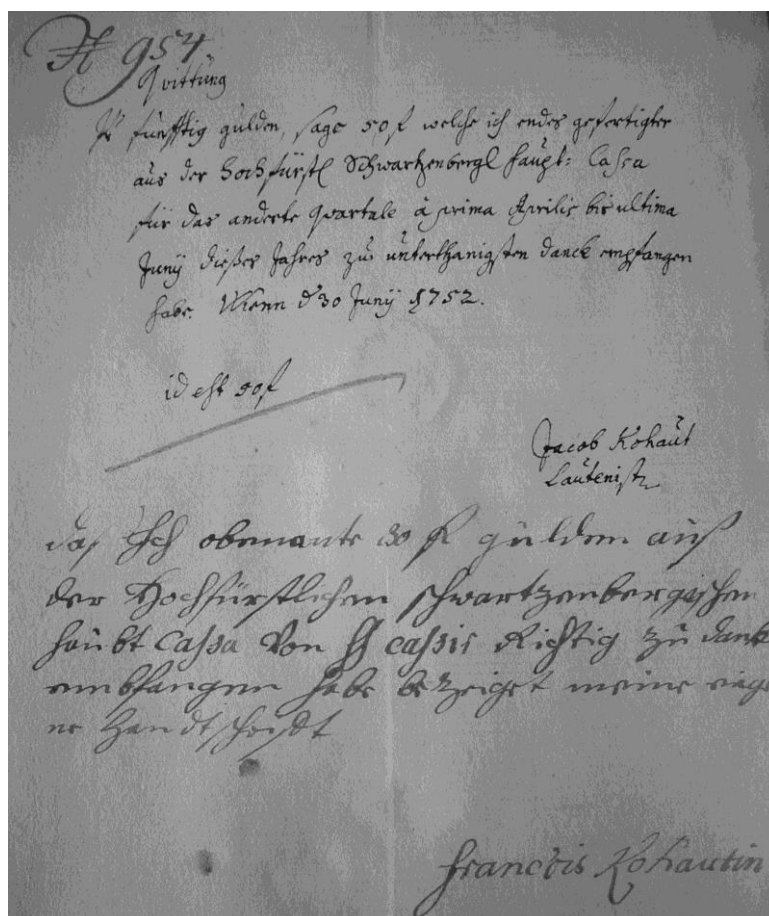 N 954.
Quittung
Pr fünfftig gulden, sage 50 f welche ich endes gefertigter
aus der Hochfürstl Schwartzenbergl Haupt: Cassa
für das anderte Quartale à prima Aprilis bis ultima
Junÿ dießes Jahres zu unterthänigsten danck empfangen
habe. Wienn d 30 Junÿ 1752.
id est 50 f
Jacob Kohaut
Lautenist
das Ich obenante 50 f gulden auß
der Hochfürstlichen schwartzenbergischen
haubt Cassa Von H Cassir Richtig zu dank
embfangen habe betzeiget meine eige
ne Handtschrifft
Francois Kohautin